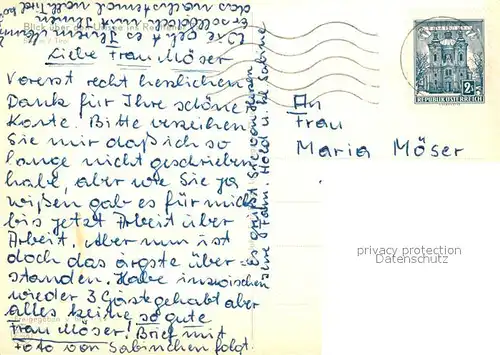 Liebe Frau Möser
Vorerst recht herzlichen
Dank für Ihre schöne
Karte. Bitte verzeihen
Sie mir daß ich so
lange nicht geschrieben
habe, aber wie Sie ja
wißen gab es für mich
bis jetzt Arbeit über
Arbeit. Aber nun ist
doch das ärgste über
standen. Habe inzwischen
wieder 3 Gäste gehabt aber
alles keine so gute
Frau Möser! Brief mit
Foto von Sabinchen folgt.
Es grüßt Sie von Herzen
Ihre Fam. Hölzl u. kl. Sabine
An
Frau
Maria Möser
REPUBLIK ÖSTERREICH
privacy protection
Datenschutz